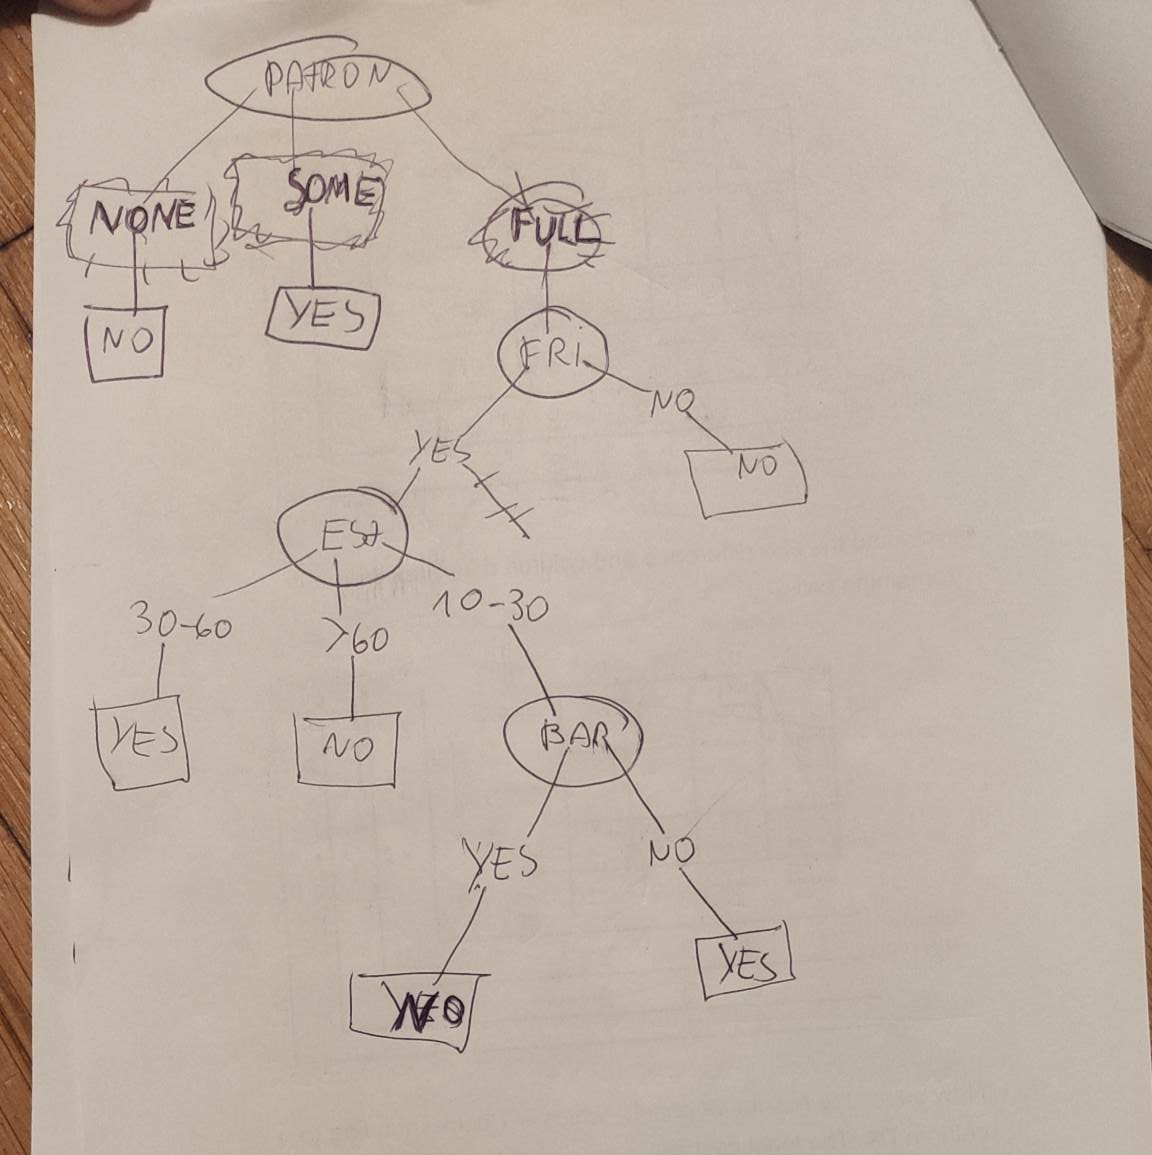 PATRON
NONE SOME FULL
NO YES FRI
YES NO
NO
EST
30-60 >60 10-30
YES NO BAR
YES NO
NO YES